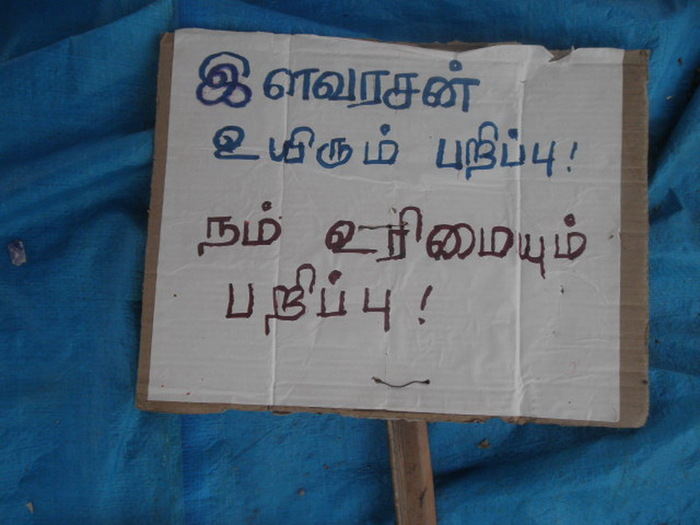 இளவரசன்
உயிரும் பறிப்பு!
நம் உரிமையும்
பறிப்பு!